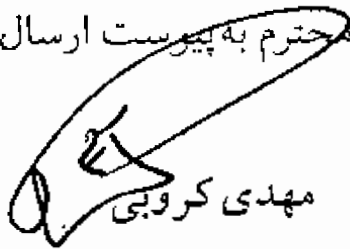 محترم به پیوست ارسال
مهدی کروبی